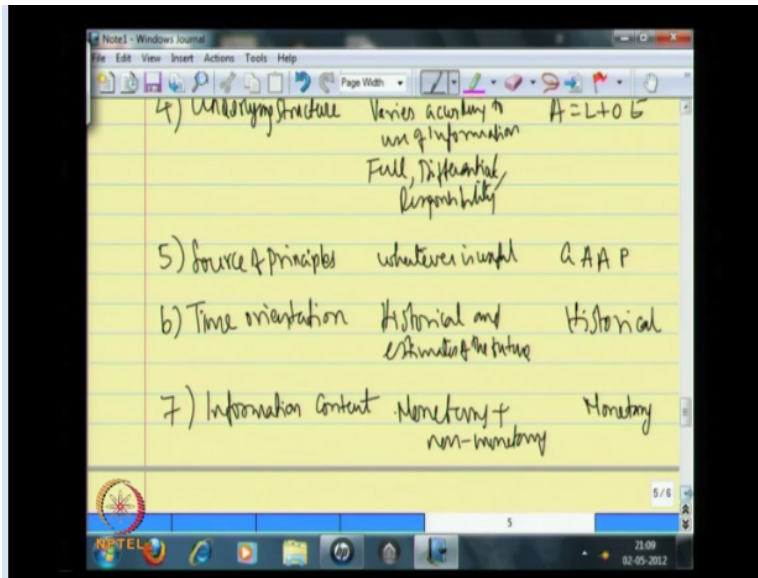 Note1 - Windows Journal
File Edit View Insert Actions Tools Help
Page Width
4) Underlying Structure Varies according to A = L + O E
use of Information
Full, Differential,
Responsibility
5) Source of principles whatever is useful GAAP
6) Time orientation Historical and Historical
estimates of the future
7) Information Content Monetary + Monetary
non-monetary
5 / 6
5
NPTEL
hp
21:09
02-05-2012